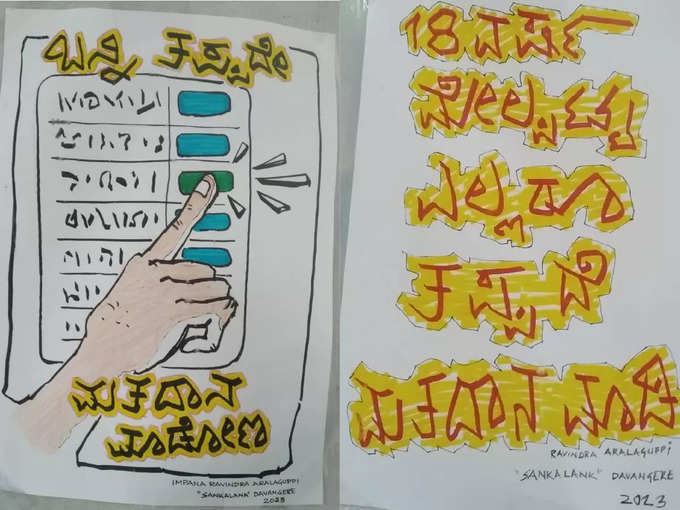 ಬನ್ನಿ ತಪ್ಪದೇ
ಮತದಾನ
ಮಾಡೋಣ
IMPANA RAVINDRA ARALAGUPPI
"SANKALANK" DAVANGERE
2023
18 ವರ್ಷ
ಮೇಲ್ಪಟ್ಟ
ಎಲ್ಲರೂ
ತಪ್ಪದೆ
ಮತದಾನ ಮಾಡಿ
RAVINDRA ARALAGUPPI
"SANKALANK" DAVANGERE
2023